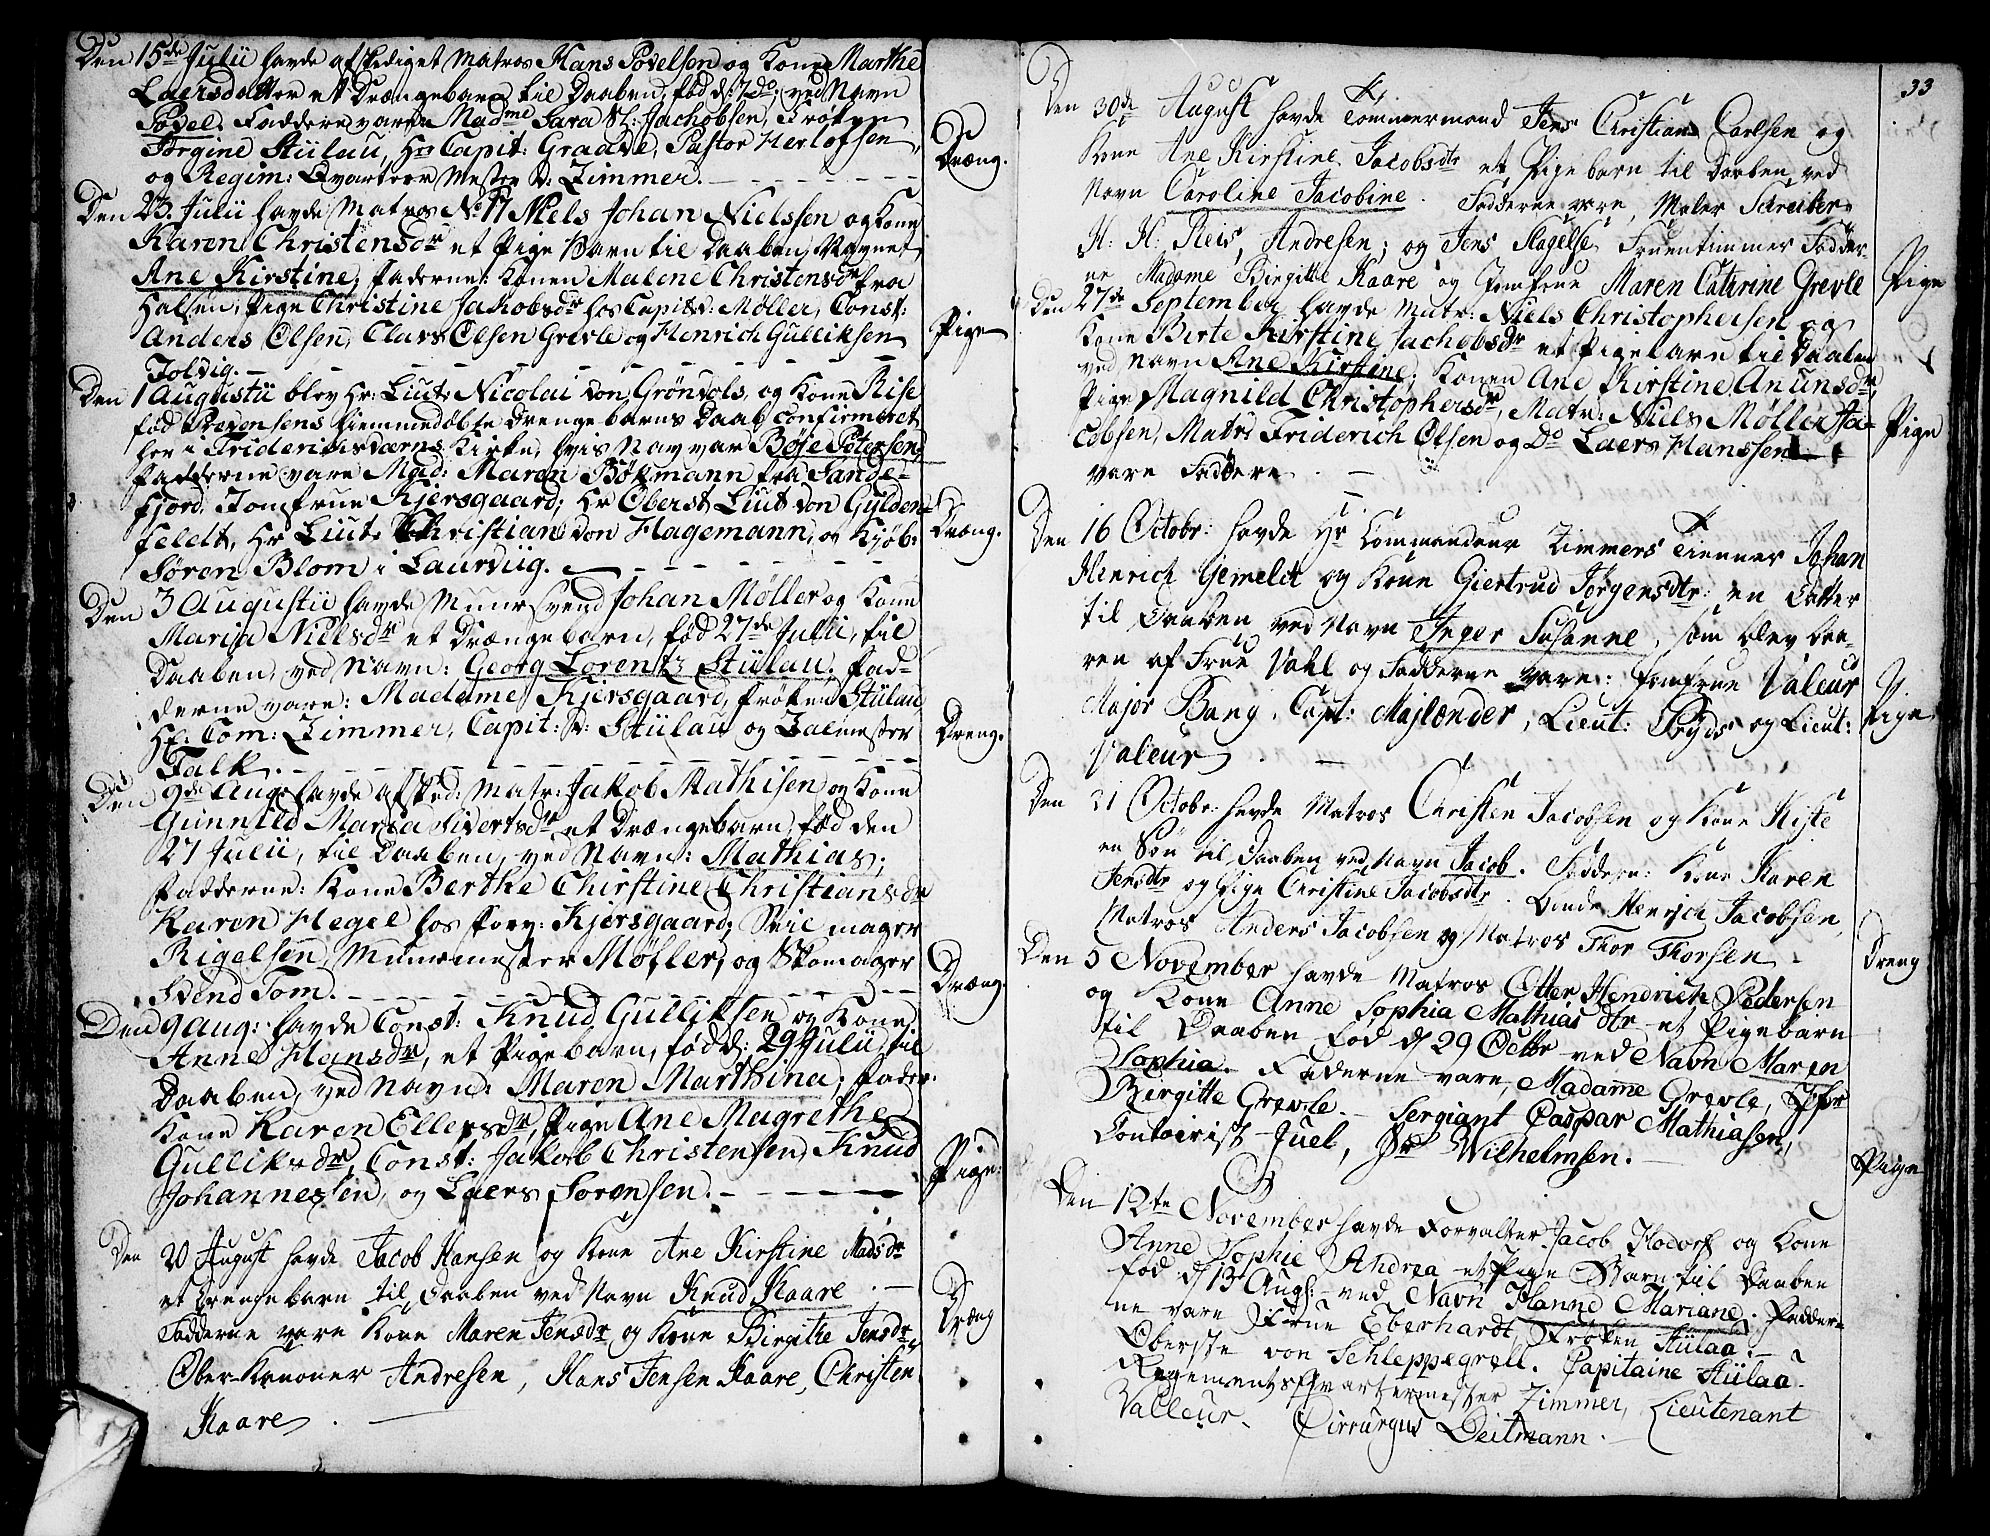 Den 15de Julii havde afskediget Matros Hans Povelsen og Kone Marthe
Laersdatter et Drængebarn til Daaben, fød d: 7 Do, ved Navn
Povel. Faddere vare Madme Sara Sl: Jachobsen, Frøken
Jørgine Stülau, Hr Capit: Graave, Pastor Herlofsen,
og Regim: Qvarteer Mester v: Zimmer.
Dræng.
Den 23. Julii havde Matros No 17 Niels Johan Nielssen og Kone
Karen Christensdr et Pige Barn til Daaben, Navnet
Ane Kirstine, Fadderne: Konen Malene Christensdr fra
Halsen, Pige Christine Jakobsdr hos Capit: Møller, Const:
Anders Olsen, Claus Olsen Grevle og Henrich Gulliksen
Toldig.
Pige
Den 1 Augustii blev Hr: Liut: Nicolai von Gröndols, og Kone Rise
fød Bærensens hiemmedøbte Drenge barns Daab confirmeret
her i Friderichsværns Kirke, hvis Nav var Bøje Petersen,
Fadderne vare Mad: Maren Bökmann fra Sande-
fjord. Jomfrue Kjersgaard, Hr Oberst Liut von Gylden-
feldt, Hr Liut: Christian von Hagemann, og Kjöb:
Søren Blom i Laurviig.
Dræng.
Den 3 Augustii havde Muursvend Johan Møller og Kone
Maria Nielsdr et Drængebarn, fød 27de Julii, til
Daaben, ved Navn: Georg Lorentz Stülau. Fad-
derne vare: Madame Kjersgaard, Frøken Stülau
Hr: Com: Zimmer, Capit: v: Stülau og Zalmester
Falk.
Dreng.
Den 9de Aug: havde afsked: Matr: Jakob Mathisen og Kone
Gunnild Maria Sivertsdr et Drængebarn, fød den
27 Julii, til Daaben, ved Navn: Mathias;
Fadderne: Kone Berthe Chirstine Christiansdr
Karen Hegel hos Forv: Kjersgaard, Seil mager
Rigelsen, Muurmester Møller, og Skomager
Svend Tom.
Dræng
Den 9 Aug: havde Const: Knud Gulliksen og Kone
Anne Hansdr, et Pigebarn, fød d: 29 Julii, til
Daaben, ved Navn: Maren Marthina; Fadder:
Kone Karen Ellersdr, Pige Ane Magrethe
Gulliksdr, Const: Jakob Christensen, Knud
Johannessen, og Laers Sørensen.
Pige:
Den 20 August havde Jacob Hansen og Kone Ane Kirstine Madsdr
et Drengebarn til Daaben ved Navn Knud Kaare.
Fadderne vare Kone Maren Jensdr og Kone Birgithe Jensdr
Ober-Kanoner Andresen, Hans Jensen Kaare, Christen
Kaare
Dræng
33
Den 30de August havde Tømmermand Jens Christian Carlsen og
Kone Ane Kirstine Jacobsdtr et Pigebarn til Daaben ved
Navn Caroline Jacobine. Fadderne vare, Maler Schreiber
H: H: Reis, Andresen, og Jens Slagelse Fruentimmer Fadder-
ne Madame Birgitte Kaare og Jomfrue Maren Cathrine Grevle
Pige
Den 27de September havde Matr: Niels Christophersen og
Kone Birte Kirstine Jachobsdr et Pigebarn til Daaben
ved navn Ane Kirstine; Konen Ane Kirstine Anunsdr,
Pige Magnild Christophersdr, Matr: Niels Møller Ja-
cobsen, Matrs Friderich Olsen og Do Laers Hanssen
vare Faddere.
Pige
Den 16 Octobr: havde Hr Commandeur Zimmers Tienner Johan
Henrich Gemeldt og Kone Giertrud Jørgensdtr: en Datter
til Daaben ved Navn Inger Susanne, som blev baa-
ren af Frue Vahl og Fadderne vare: Jomfrue Valeur
Major Bang, Capt: Majlænder, Lieut: Prÿds og Lieut:
Valeur
Pige
Den 21 Octobr: havde Matros Christen Jacobsen og Kone Kiste
en Søn til Daaben ved Navn Jacob. Faddern: Kone Karen
Jensdtr og Pige Christine Jacobsdtr. Bunde Henrich Jacobsen,
Matros Anders Jacobsen og Matros Thor Thorsen
Dreng
Den 5 November havde Matros Otter Hendrich Pedersen
og Kone Anne Sophia Mathiasdtr et Pigebarn
til Daaben fød d 29 Octbr ved Navn Maren
Sophia. Faderne vare, Madame Grevle, Jfr
Birgitte Grevle. Sergiant Caspar Mathiasen,
Contoirist Juel, Hr Wilhelmsen.
Pige
Den 12te November havde Forvalter Jacob Hodorf og Kone
Anne Sophie Andrea et Pige Barn til Daaben
fød d 13 Aug: ved Navn Hanne Mariane. Fadder-
ne vare Frue Eberhardt, Frøken Stülaa.
Oberste von Schleppegrell. Capitaine Stülaa.
Regementsqvartermester Zimmer, Lieutenant
Valleur. Cirrurgus Deitmann.